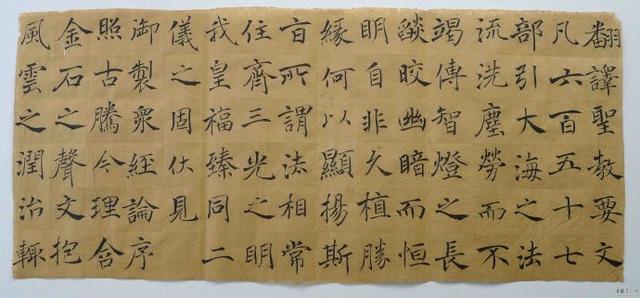 翻譯聖教要文
凡六百五十七
部引大海之法
流洗塵勞而不
竭傳智燈之長
燄皎幽暗而恒
明自非久植勝
緣何以顯揚斯
旨所謂法相常
住齊三光之明
我皇福臻同二
儀之固伏見
御製衆經論序
照古騰今理含
金石之聲文抱
風雲之潤治輒